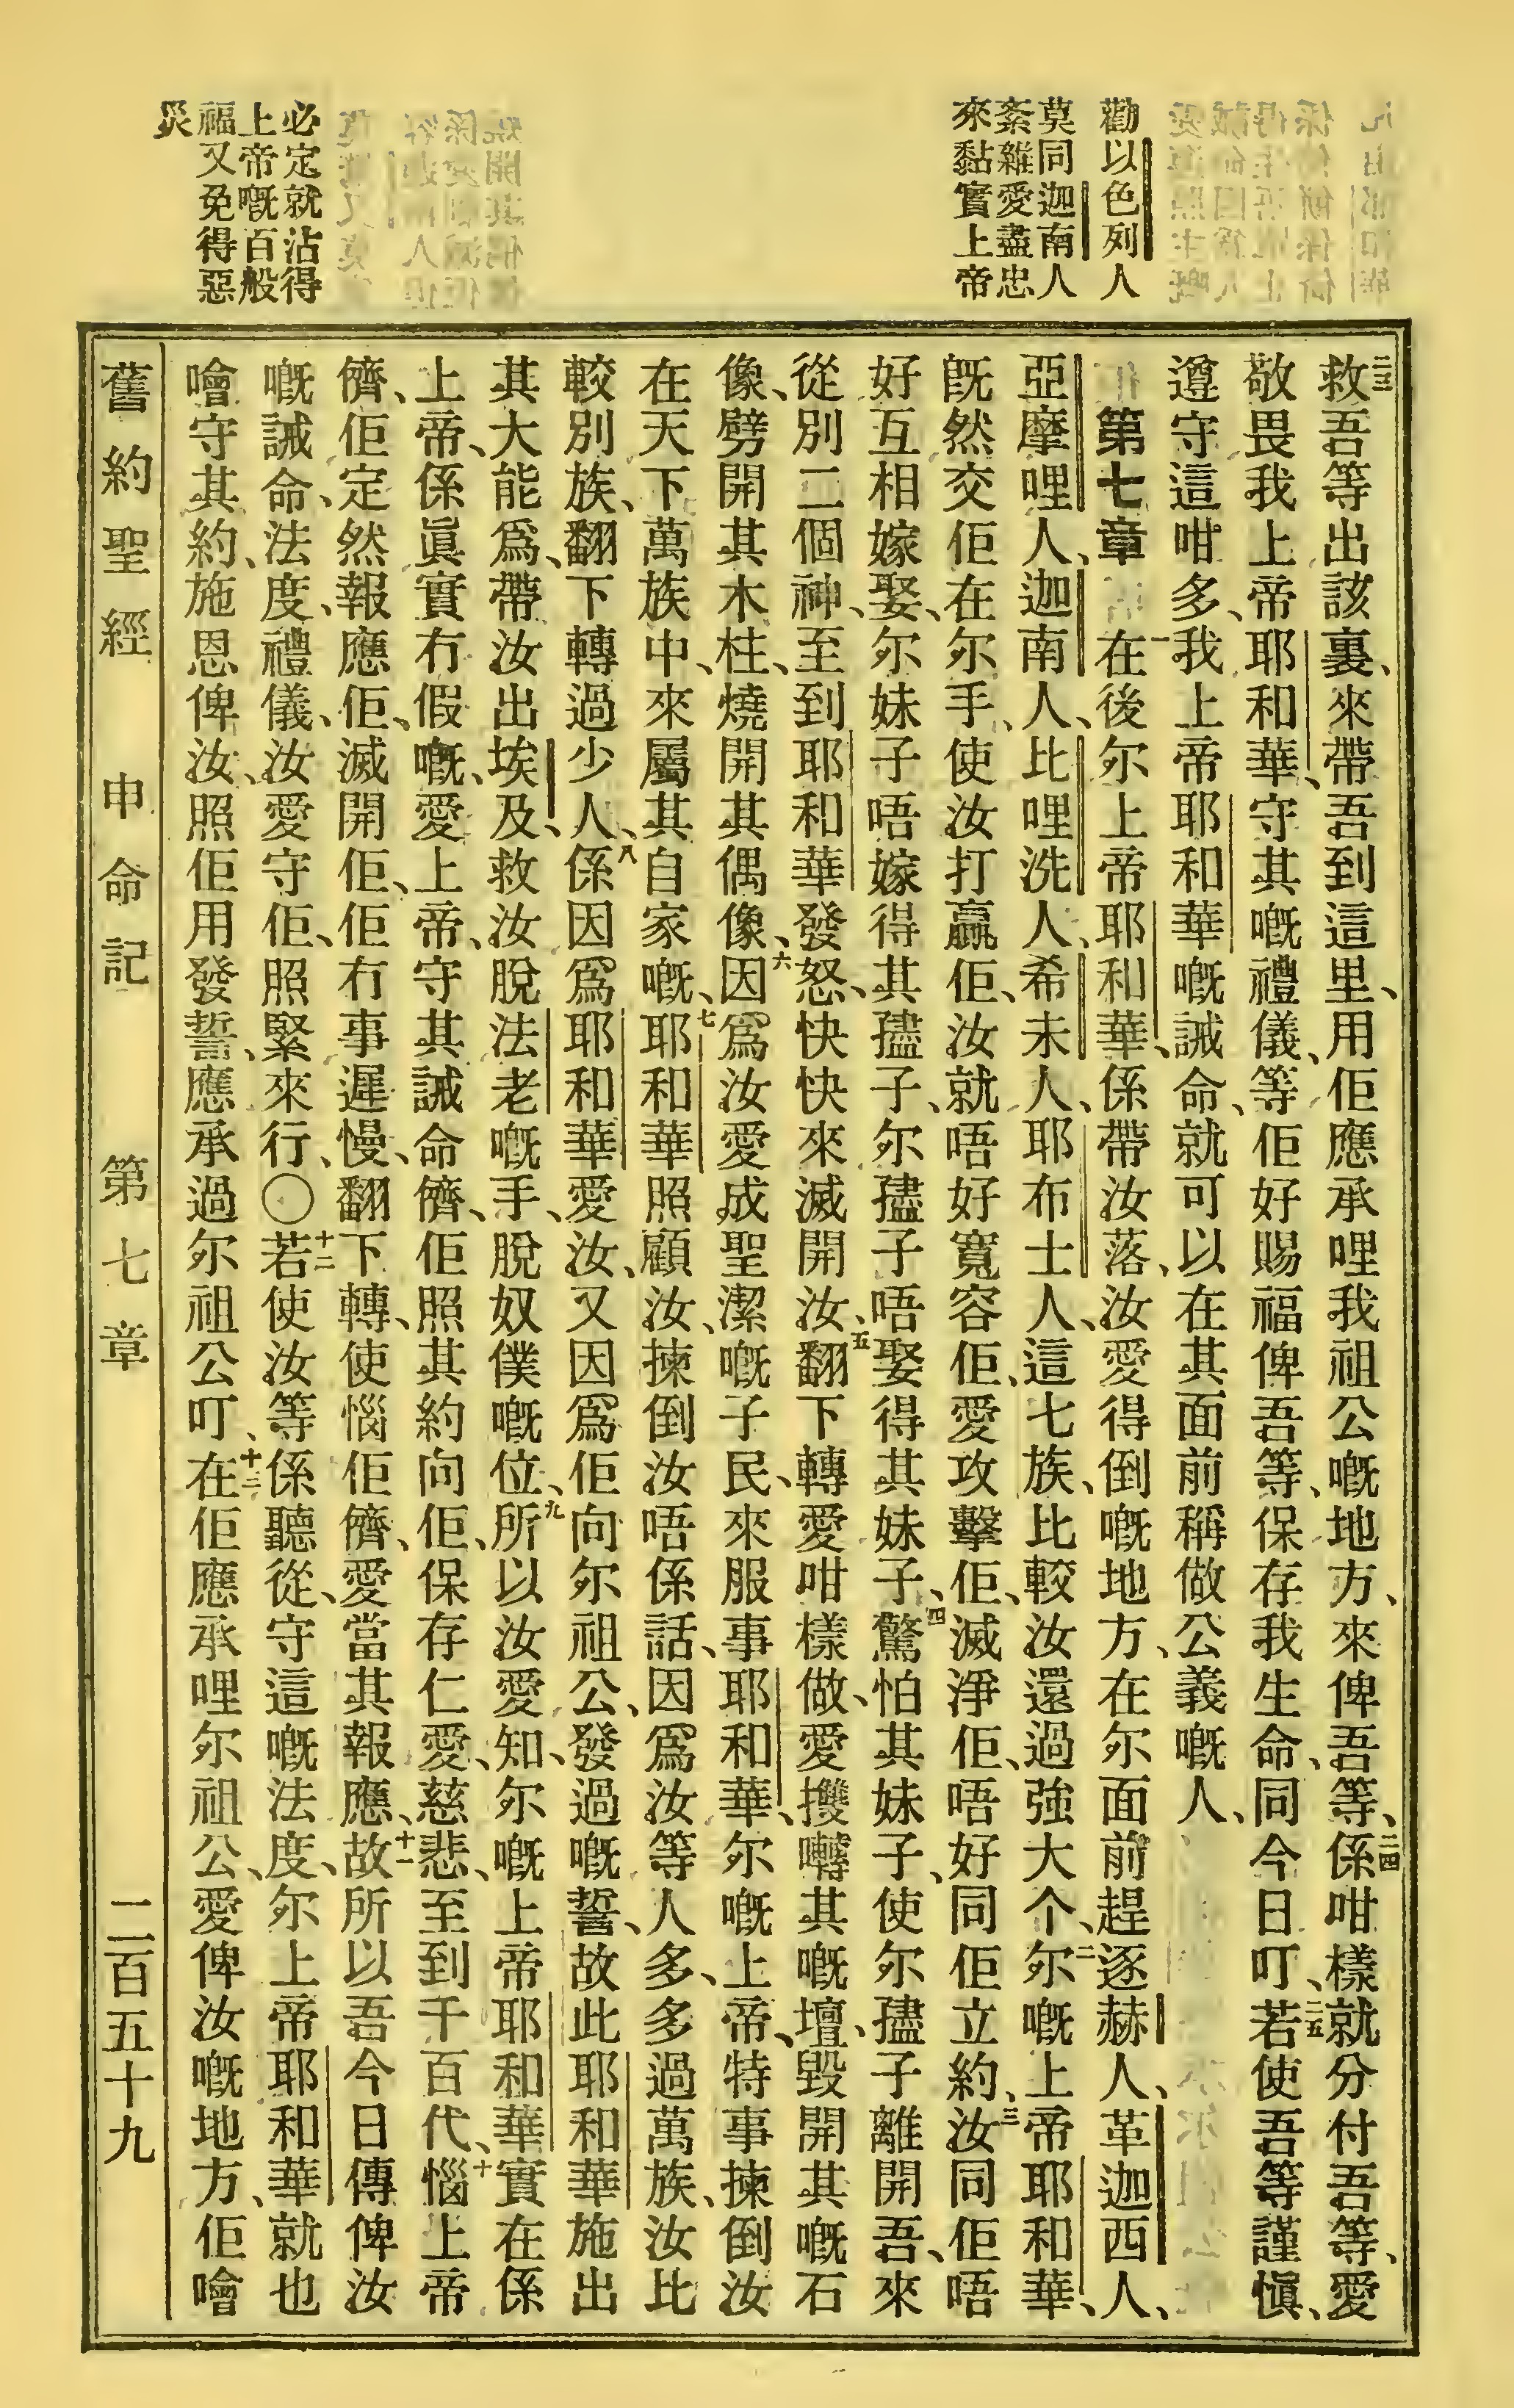 勸以色列人
莫同迦南人
紊雜愛盡忠
來黏實上帝
必定就沾得
上帝嘅百般
福又免得惡
災
二三救吾等出該裏、來帶吾到這里、用佢應承哩我祖公嘅地方、來俾吾等、二四係咁樣就分付吾等、愛
敬畏我上帝耶和華、守其嘅禮儀、等佢好賜福俾吾等、保存我生命、同今日叮、二五若使吾等謹愼、
遵守這咁多、我上帝耶和華嘅誡命、就可以在其面前稱做公義嘅人、
第七章 一在後尔上帝耶和華、係帶汝落、汝愛得倒嘅地方、在尔面前趕逐赫人、革迦西人、
亞摩哩人、迦南人、比哩洗人、希未人、耶布士人、這七族、比較汝還過強大个、二尔嘅上帝耶和華、
旣然交佢在尔手、使汝打贏佢、汝就唔好寬容佢、愛攻擊佢、滅淨佢、唔好同佢立約、三汝同佢唔
好互相嫁娶、尔妹子唔嫁得其孻子、尔孻子唔娶得其妹子、四驚怕其妹子、使尔孻子離開吾、來
從別二個神、至到耶和華發怒、快快來滅開汝、五翻下轉愛咁樣做、愛㩳囀其嘅壇、毀開其嘅石
像、劈開其木柱、燒開其偶像、六因爲汝愛成聖潔嘅子民、來服事耶和華、尔嘅上帝、特事揀倒汝
在天下萬族中、來屬其自家嘅、七耶和華照顧汝、揀倒汝唔係話、因爲汝等人多、多過萬族、汝比
較別族、翻下轉過少人、八係因爲耶和華愛汝、又因爲佢向尔祖公、發過嘅誓、故此耶和華施出
其大能爲、帶汝出埃及、救汝脫法老嘅手、脫奴僕嘅位、九所以汝愛知、尔嘅上帝耶和華實在係
上帝、係眞實冇假嘅、愛上帝、守其誡命儕、佢照其約向佢、保存仁愛、慈悲、至到千百代、十惱上帝
儕、佢定然報應佢、滅開佢、佢冇事遲慢、翻下轉、使惱佢儕、愛當其報應、十一故所以吾今日傳俾汝
嘅誡命、法度、禮儀、汝愛守佢、照緊來行、〇十二若使汝等係聽從、守這嘅法度、尔上帝耶和華就也
噲守其約、施恩俾汝、照佢用發誓、應承過尔祖公叮、十三在佢應承哩尔祖公、愛俾汝嘅地方、佢噲
舊約聖經 申命記 第七章 二百五十九